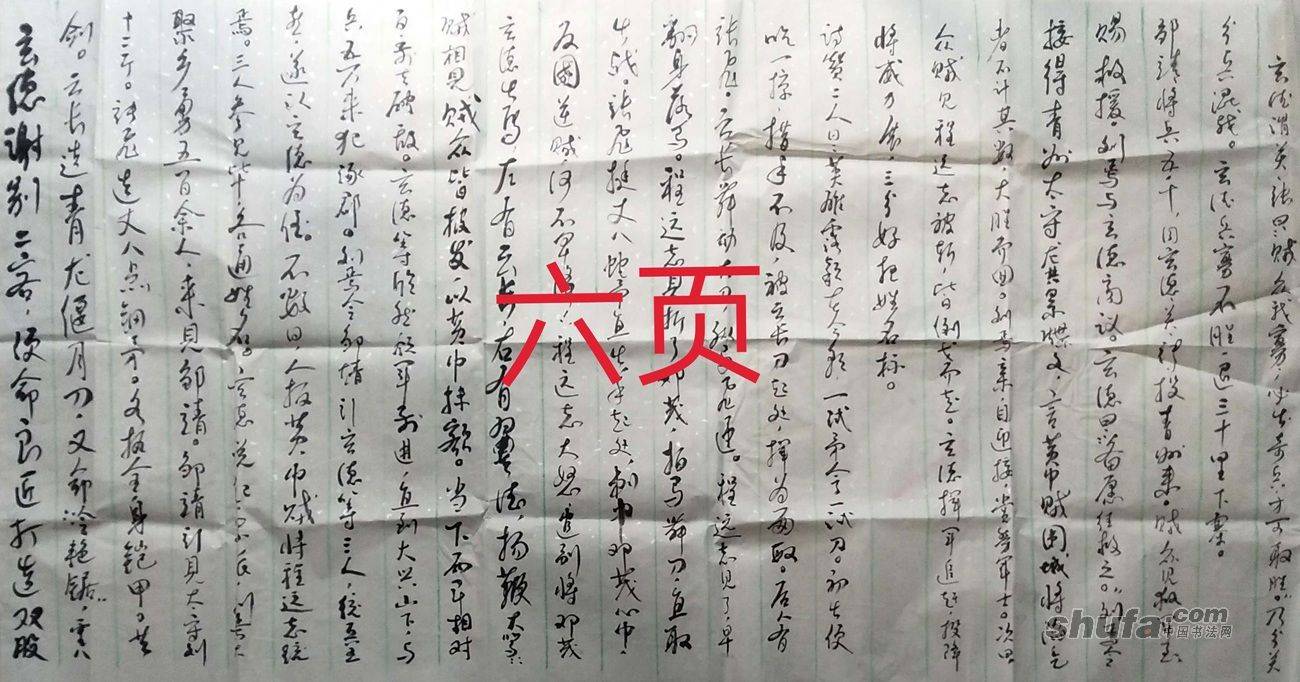 玄德谢别二客，便命良匠打造双股
剑。云长造青龙偃月刀，又命冷艳锯，重八
十二斤。张飞造丈八点钢矛。各执全身铠甲。共
聚乡勇五百余人，来见邹靖。邹靖引见太守刘
焉。三人参见毕，各通姓名。玄德说
遂认玄德为侄。不数日，人报黄巾贼将程远志统
兵五万来犯涿郡。刘焉令邹靖引玄德等三人，统兵五
百，前去破敌。玄德等欣然领军前进，直到大兴山下，与
贼相见。贼众皆披发，以黄巾抹额。当下两军相对
玄德出马，左有云长，右有翼德，扬鞭大骂：
反国逆贼，何不早降！程远志大怒，遣副将邓茂
出战。张飞挺丈八蛇矛直出，手起处，刺中邓茂心中，
翻身落马。程远志见折了邓茂，拍马舞刀，直取
张飞。云长舞动大刀，纵马飞迎。程远志见了，早
吃一惊，措手不及，被云长刀起处，挥为两段。后人有
诗赞二人曰：英雄露颖在今朝，一试矛兮一试刀。初出便
将威力展，三分好把姓名标。
众贼见程远志被斩，皆倒戈而走。玄德挥军追赶，投降
者不计其数，大胜而回。刘焉亲自迎接，赏劳军士。次日
接得青州太守龚景牒文，言黄巾贼围城将陷，乞
赐救援。刘焉与玄德商议。玄德曰：备愿往救之。刘焉令
邹靖将兵五千，同玄德、关、张投青州来。贼众见救军至，
分兵混战。玄德兵寡不胜，退三十里下寨。
玄德谓关、张曰：贼众我寡，必出奇兵，方可取胜。乃分关
六页
shufa.com
中国书法网